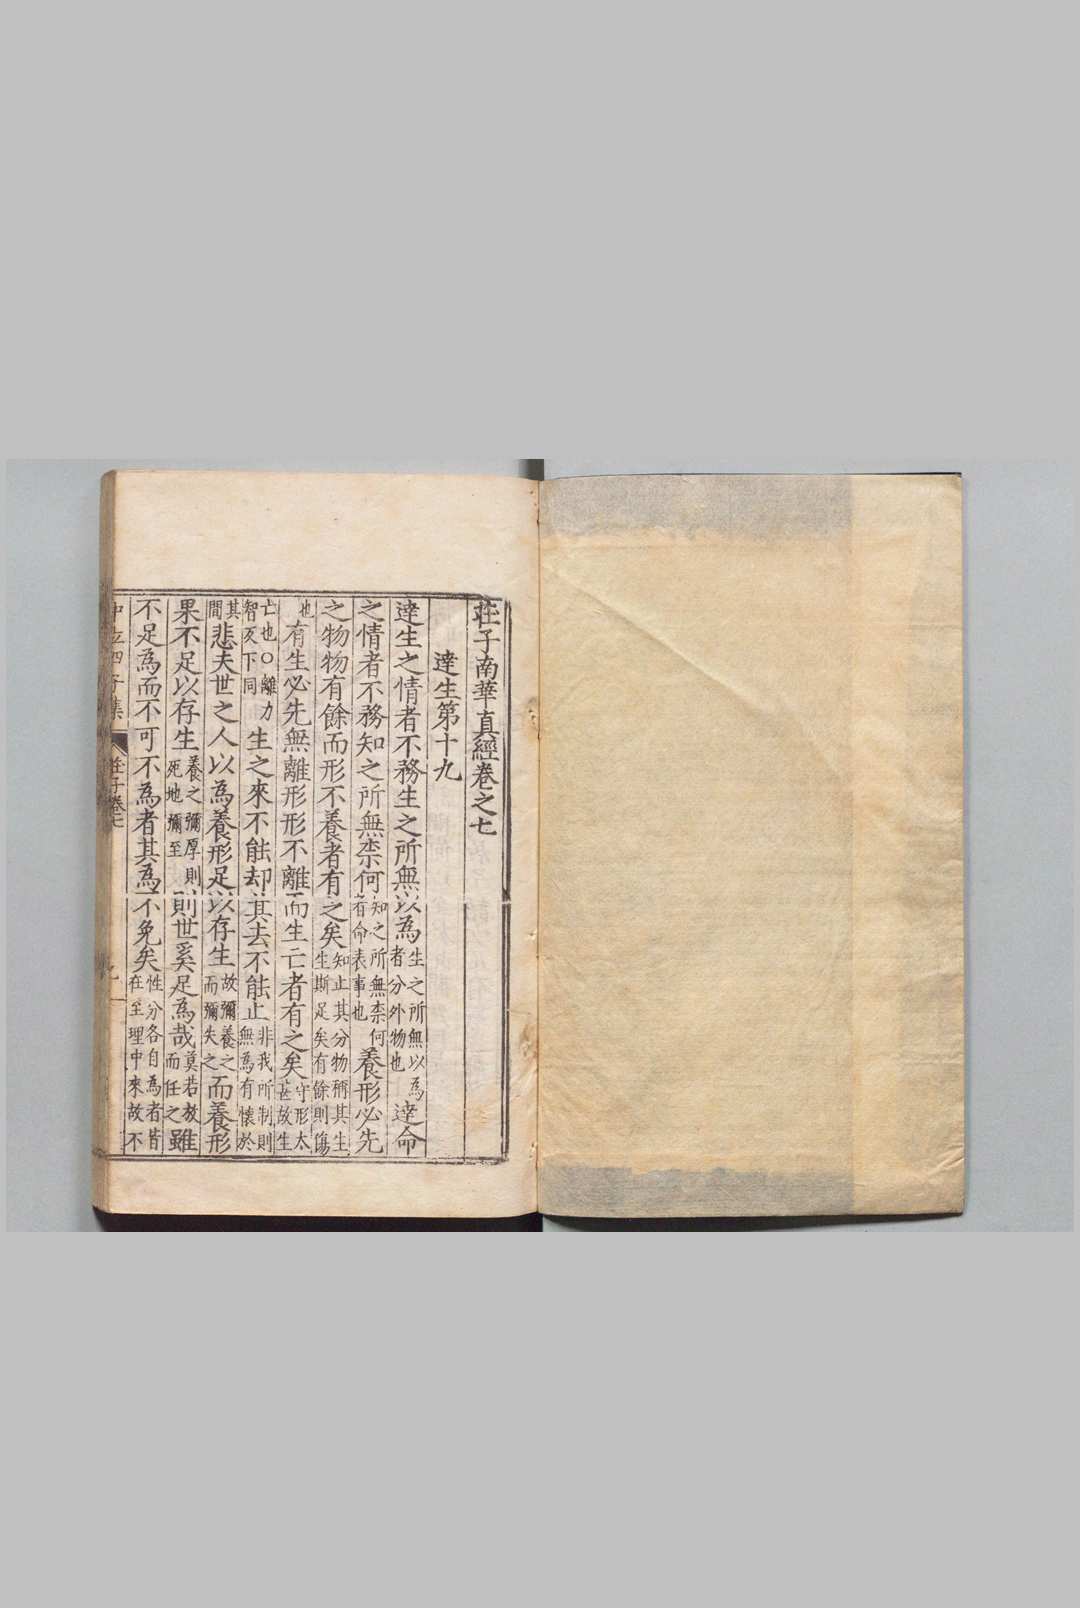 莊子南華真經卷之七
達生第十九
達生之情者不務生之所無以為生之所無以為者分外物也達命
之情者不務知之所無柰何知之所無柰何有命表事也養形必先
之物物有餘而形不養者有之矣知止其分物稱其生生斯足矣有餘則傷
也有生必先無離形形不離而生亡者有之矣守形太甚故生
亡也○離力智反下同生之來不能却其去不能止非我所制則無為有懷於
其間悲夫世之人以為養形足以存生故彌養之而彌失之而養形
果不足以存生養之彌厚則死地彌至則世奚足為哉莫若放而任之雖
不足為而不可不為者其為不免矣性分各自為者皆在至理中來故不
中立四子集 莊子卷七 一